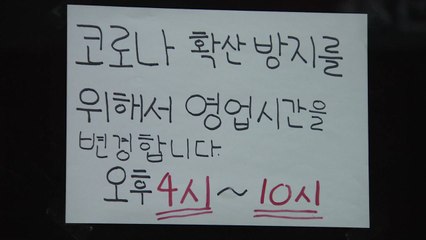 코로나 확산 방지를
위해서 영업시간을
변경합니다.
오후 4시~10시